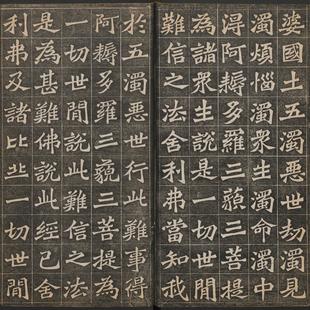 婆國土五濁惡世劫濁見
濁煩惱濁眾生濁命濁中
淂阿耨多羅三藐三菩提
為諸眾生說是一切世間
難信之法舍利弗當知我
於五濁惡世行此難事得
阿耨多羅三藐三菩提為
一切世間說此難信之法
是為甚難佛說此經已舍
利弗及諸比丘一切世間